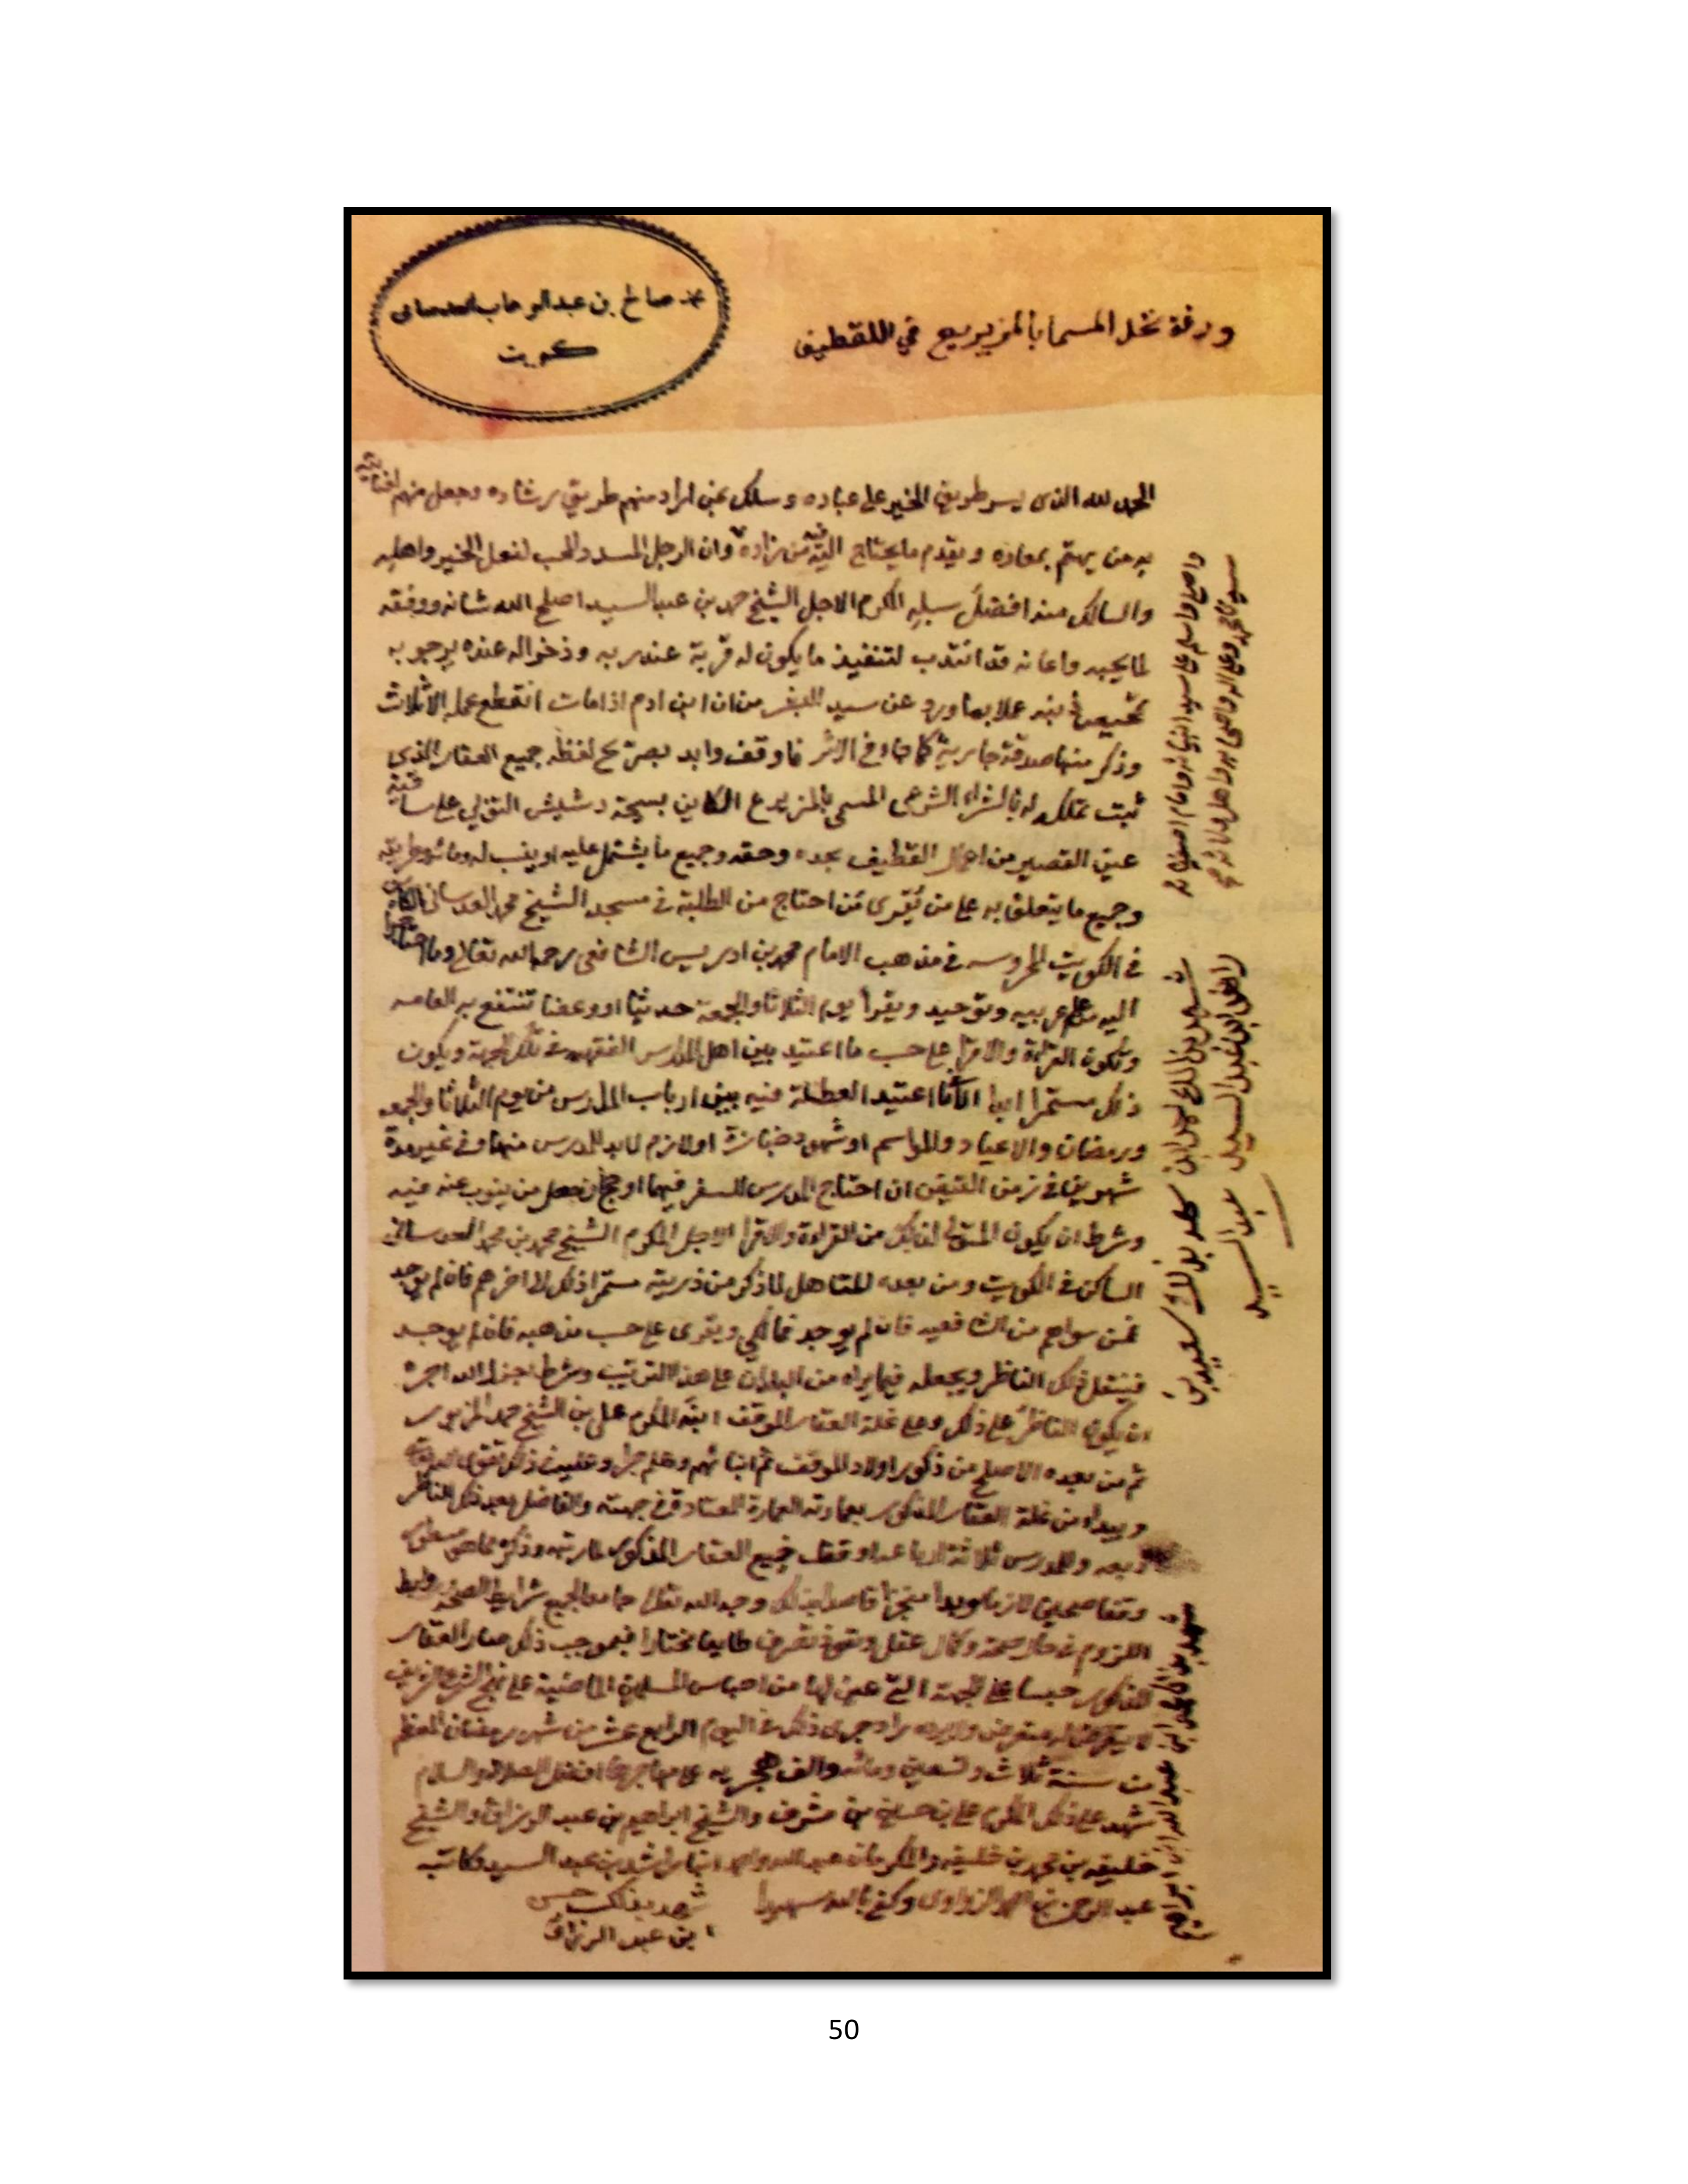 صالح بن عبدالوهاب العدساني
كويت
ورقة نخل المسما بالمزيريع في اللقطيف
الحمد لله الذي يسر طريق الخير على عباده وسلك بمن اراد منهم طريق رشاده وجعل منهم
به من يهتم بمعاده ويقدم ما يحتاج اليه فيه من زاده وان الرجل المسدد والمحب لفعل الخير واهليه
والسالك منه افضل سبله المكرم الاجل الشيخ حمد بن عبدالسيد اصلح الله شانه ووفقه
لما يحبه واعانه قد انتدب لتنفيذ ما يكون له قربة عند ربه وذخرا له عنده يرجو به
ذنبه عملا بما ورد عن سيد البشر من ان ابن ادم اذا مات انقطع عمله الا ثلاث
وذكر منها صدقة جارية كما جاء في الاثر فاوقف وابد بصريح لفظه جميع العقار الذي
ثبت تملكه له بالشراء الشرعي المسمى بالمزيرع الكاين بسيحة التي على ساقية
عين القصير من اعمال القطيف بحده وحقه وجميع ما يشتمل عليه او ينسب له ومائه وطريقه
وجميع ما يتعلق به على من يقرئ من احتاج من الطلبة في مسجد الشيخ محمد العدساني الكاين
في الكويت المحروسه في مذهب الامام محمد بن ادريس الشافعي رحمه الله تعالى وما احتاجوا
اليه من علم عربيه وتوحيد ويقرأ يوم الثلاثا والجمعة حديثا او وعظا تنتفع به العامه
وتكون القراءة والاقرا على حسب ما اعتيد بين اهل المدارس الفقهيه في تلك الجهة ويكون
ذلك مستمرا ابدا الا ما اعتيد العطلة فيه بين ارباب المدارس من يوم الثلاثا والجمعه
ورمضان والاعياد والمواسم او شهود جنازة او لازم لابد للمدرس منها وفي غير مدة
شهرين في زمن القيض ان احتاج المدرس للسفر فيهما او حج ان جعل من ينوب عنه فيه
وشرط ان يكون المتولي لذلك من القراءة والاقرا الاجل المكرم الشيخ محمد بن محمد العدساني
الساكن في الكويت ومن بعده المتاهل لما ذكر من ذريته مستمرا ذلك الى اخرهم فان لم يوجد
فمن سواهم من الشافعيه فان لم يوجد فمالكي ويقرى على حسب مذهبه فان لم يوجد
فينقل ذلك الناظر ويجعله فيما يراه من البلدان على هذا الترتيب وشرط اجزل الله اجره
ان يكون الناظر على ذلك وعلى غلة العقار الموقف ابنه المكرم علي بن الشيخ حمد المزبور
ثم من بعده الاصلح من ذكور اولاد الموقف ثم ابنائهم وهلم جرا وعليه في ذلك تقوى الله
ويبداء من غلة العقار المذكور بعمارته العمارة المعتادة في جهته والفاضل بعد ذلك للناظر
ربعه وللمدرس ثلاثة ارباعه اوقف جميع العقار المذكور
وقفا صحيحا لازما مؤبدا منجزا قاصدا بذلك وجه الله تعالى جامعا لجميع شرايط الصحة
اللزوم في حال صحة وكمال عقل ونفوذ تصرف طايعا مختارا فبموجب ذلك صار العقار
المذكور حبسا على الجهة التي عين لها من احباس المسلمين الماضية على نهج الشرع الشريف
لا يتعرض له متعرض ولا يرده راد جرى ذلك في اليوم الرابع عشر من شهر رمضان المعظم
من سنة ثلاث وتسعين ومائه والف هجريه على مهاجرها افضل الصلاة والسلام
شهد على ذلك المكرم علي بن حسين بن مشرف والشيخ ابراهيم بن عبد الرزاق والشيخ
خليفه بن محمد بن خليفه والمكرمان عبد الله واحمد ابنا راشد بن عبد السيد وكاتبه
عبد الرحمن بن احمد الزواوي وكفى بالله شهيدا
شهد بذلك حسن
ابن عبد الرزاق
واصلي واسلم على سيد انبيائه وامام اصفيائه
سيدنا محمد وعلى اله واصحابه